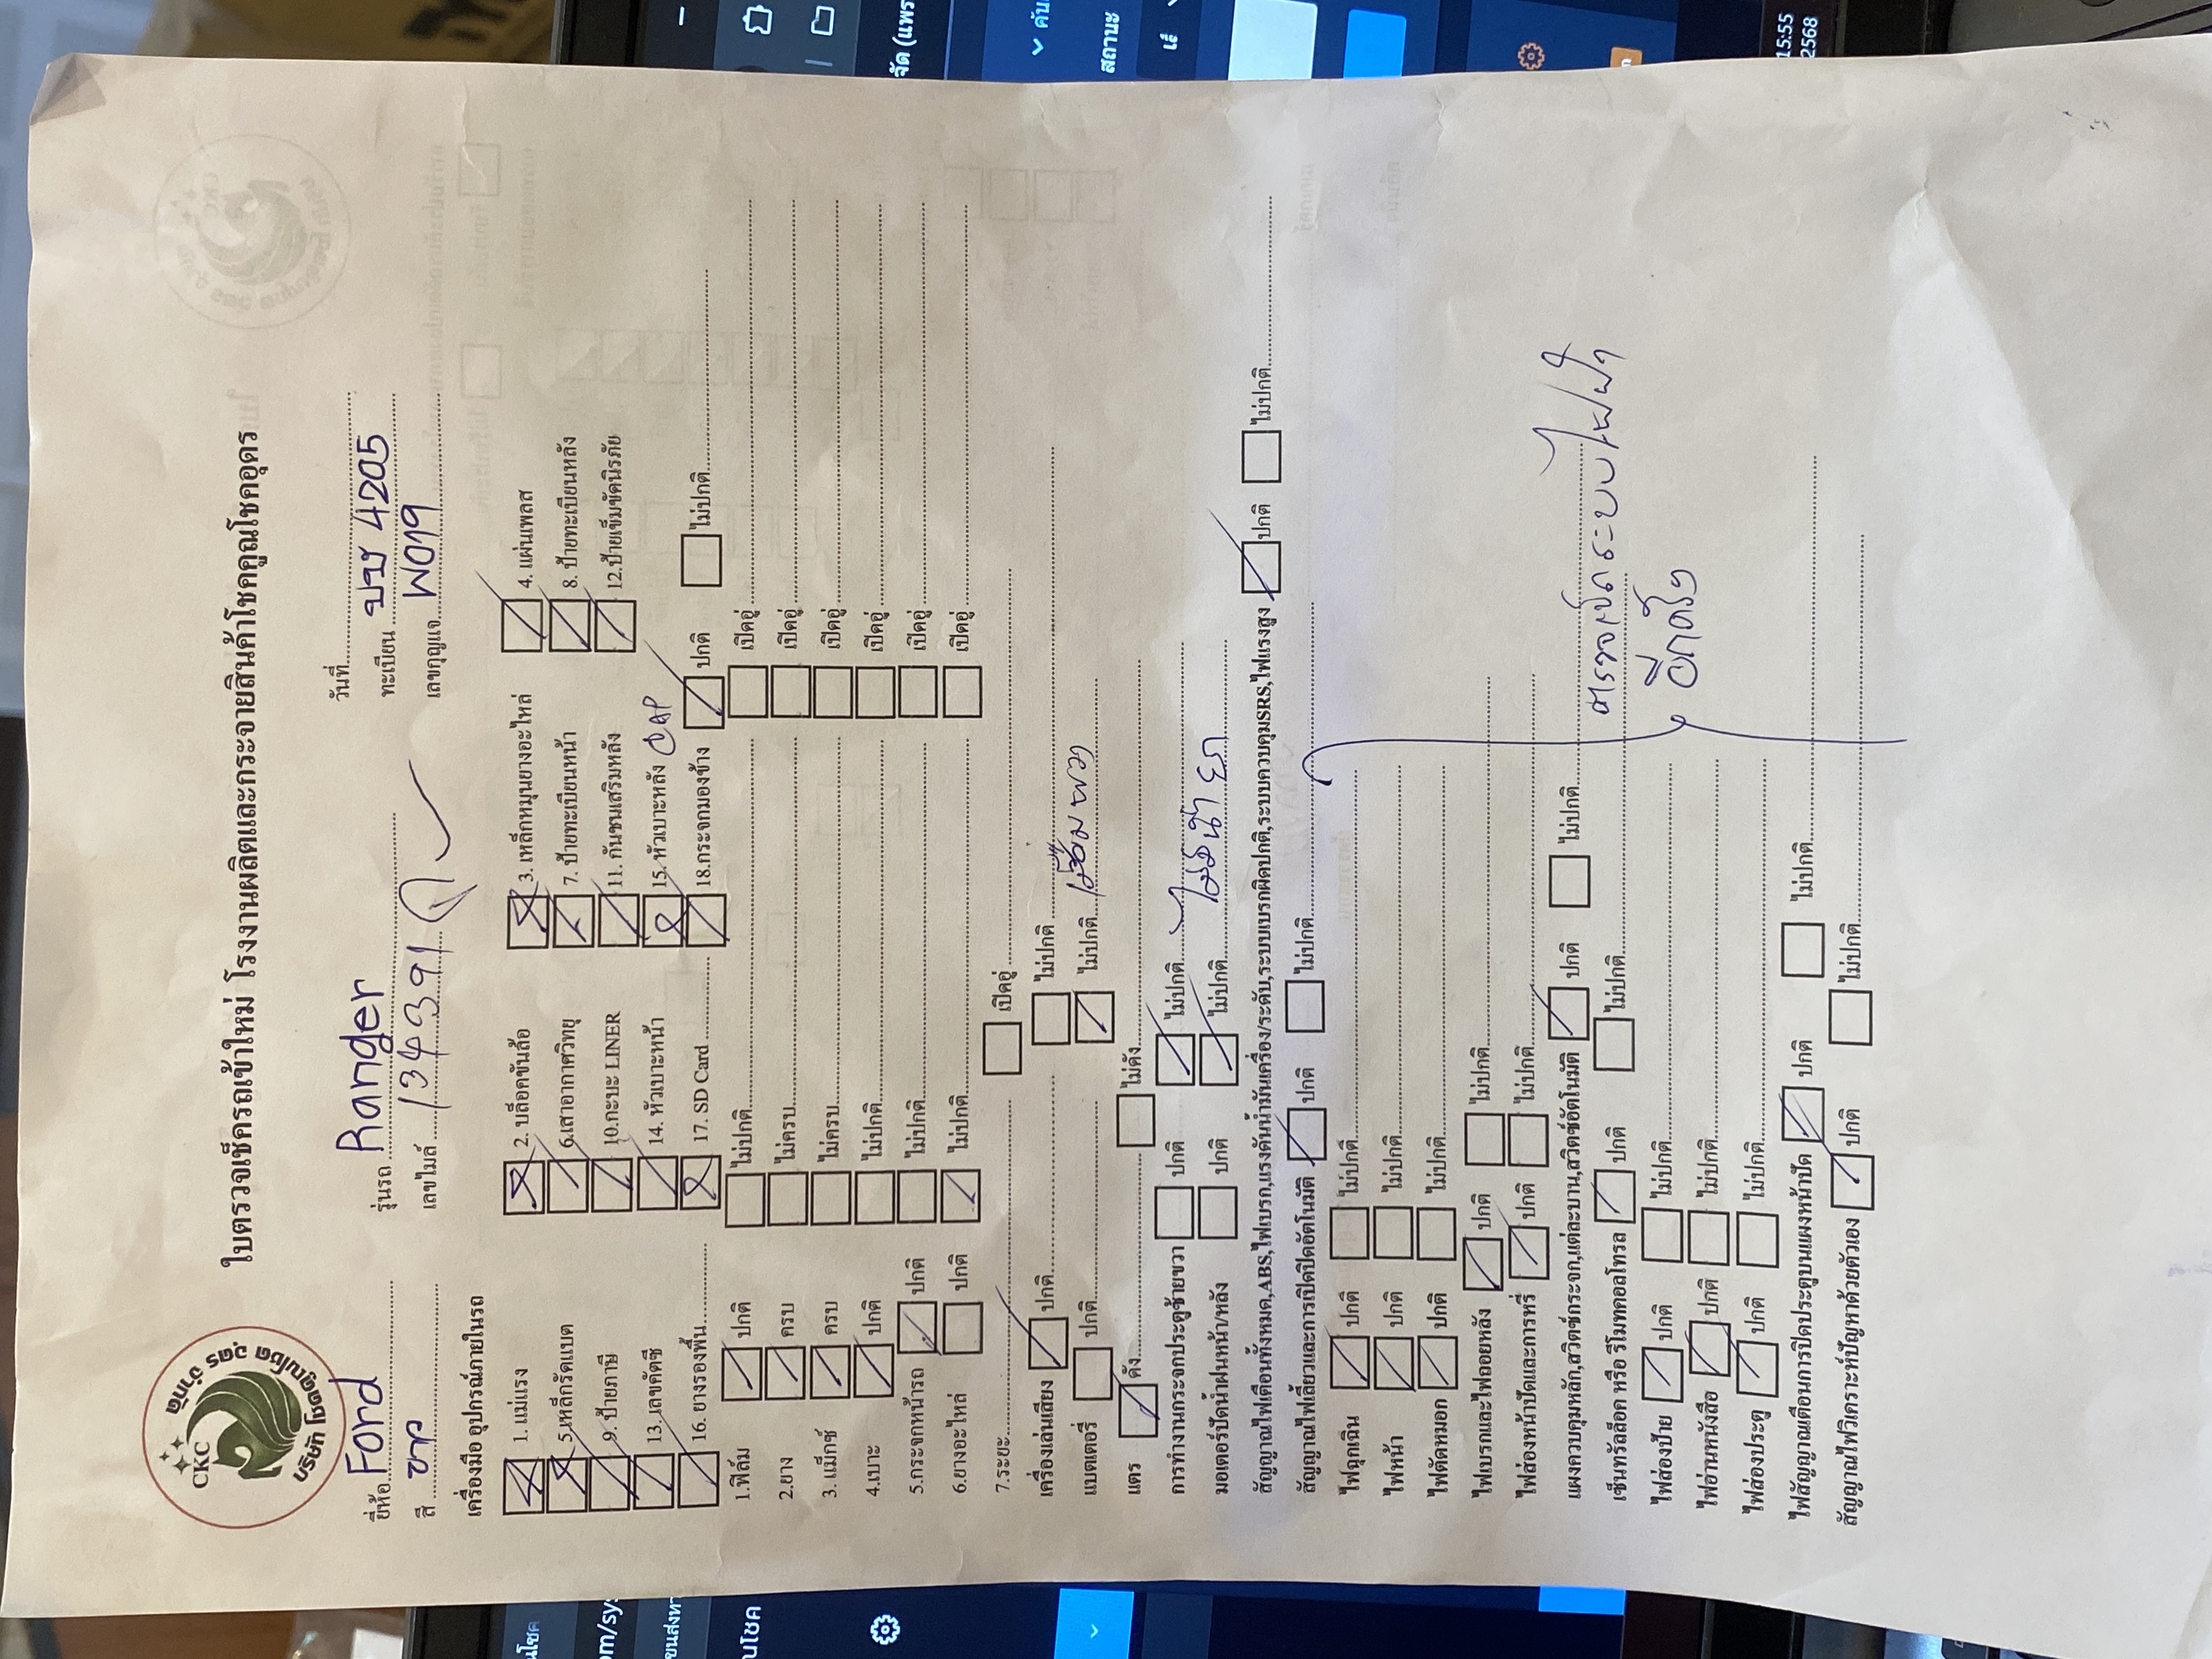 CKC
บริษัท โชคคูณโชค อุดร จำกัด
ใบตรวจเช็ครถเข้าใหม่ โรงงานผลิตและกระจายสินค้าโชคคูณโชคอุดร
วันที่
ยี่ห้อ Ford รุ่นรถ Ranger ทะเบียน 4205
สี ขาว เลขไมล์ 134391 เลขกุญแจ W019
เครื่องมือ อุปกรณ์ภายในรถ
1. แม่แรง 2. บล็อคขันล้อ 3. เหล็กหมุนยางอะไหล่ 4. แผ่นเพลส
5.เหล็กรัดแบต 6.เสาอากาศวิทยุ 7. ป้ายทะเบียนหน้า 8. ป้ายทะเบียนหลัง
9. ป้ายภาษี 10.กะบะ LINER 11. กันชนเสริมหลัง 12.ป้ายเข็มขัดนิรภัย
13. เลขคัดซี 14. หัวเบาะหน้า 15. หัวเบาะหลัง CAP
16. ยางรองพื้น 17. SD Card 18.กระจกมองข้าง ปกติ ไม่ปกติ
1.ฟิล์ม ปกติ ไม่ปกติ เปิดอู่
2.ยาง ครบ ไม่ครบ เปิดอู่
3. แม็กซ์ ครบ ไม่ครบ เปิดอู่
4.เบาะ ปกติ ไม่ปกติ เปิดอู่
5.กระจกหน้ารถ ปกติ ไม่ปกติ เปิดอู่
6.ยางอะไหล่ ปกติ ไม่ปกติ เปิดอู่
7.ระยะ เปิดอู่
เครื่องเล่นเสียง ปกติ ไม่ปกติ
แบตเตอรี่ ปกติ ไม่ปกติ
แตร ดัง ไม่ดัง
การทำงานกระจกประตูซ้ายขวา ปกติ ไม่ปกติ
มอเตอร์ปัดน้ำฝนหน้า/หลัง ปกติ ไม่ปกติ
สัญญาณไฟเตือนทั้งหมด,ABS,ไฟเบรก,แรงดันน้ำมันเครื่อง/ระดับ,ระบบเบรกผิดปกติ,ระบบควบคุมSRS,ไฟแรงสูง ปกติ ไม่ปกติ
สัญญาณไฟเลี้ยวและการเปิดปิดอัตโนมัติ ปกติ ไม่ปกติ
ไฟฉุกเฉิน ปกติ ไม่ปกติ
ไฟหน้า ปกติ ไม่ปกติ
ไฟตัดหมอก ปกติ ไม่ปกติ
ไฟเบรกและไฟถอยหลัง ปกติ ไม่ปกติ
ไฟส่องหน้าปัดและการหรี่ ปกติ ไม่ปกติ
แผงควบคุมหลัก,สวิตซ์กระจก,แต่ละบาน,สวิตซ์อัตโนมัติ ปกติ ไม่ปกติ
เซ็นทรัลล็อค หรือ รีโมทคอลโทรล ปกติ ไม่ปกติ
ตรวจเช็คระบบไฟฟ้า
อีกครั้ง
ไฟส่องป้าย ปกติ ไม่ปกติ
ไฟอ่านหนังสือ ปกติ ไม่ปกติ
ไฟส่องประตู ปกติ ไม่ปกติ
ไฟสัญญาณเตือนการปิดประตูบนแผงหน้าปัด ปกติ ไม่ปกติ
สัญญาณไฟวิเคราะห์ปัญหาด้วยตัวเอง ปกติ ไม่ปกติ
สถานะ
15:55
2568